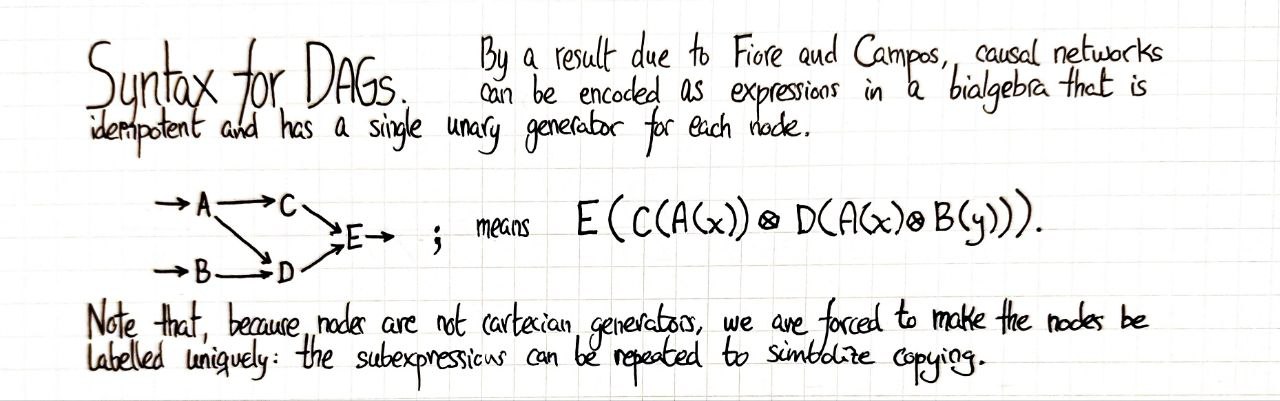 Syntax for DAGs. By a result due to Fiore and Campos, causal networks
can be encoded as expressions in a bialgebra that is
idempotent and has a single unary generator for each node.
→ A → C
E → ; means E(C(A(x)) ⊗ D(A(x) ⊗ B(y))).
→ B → D
Note that, because nodes are not cartesian generators, we are forced to make the nodes be
labelled uniquely: the subexpressions can be repeated to simbolize copying.